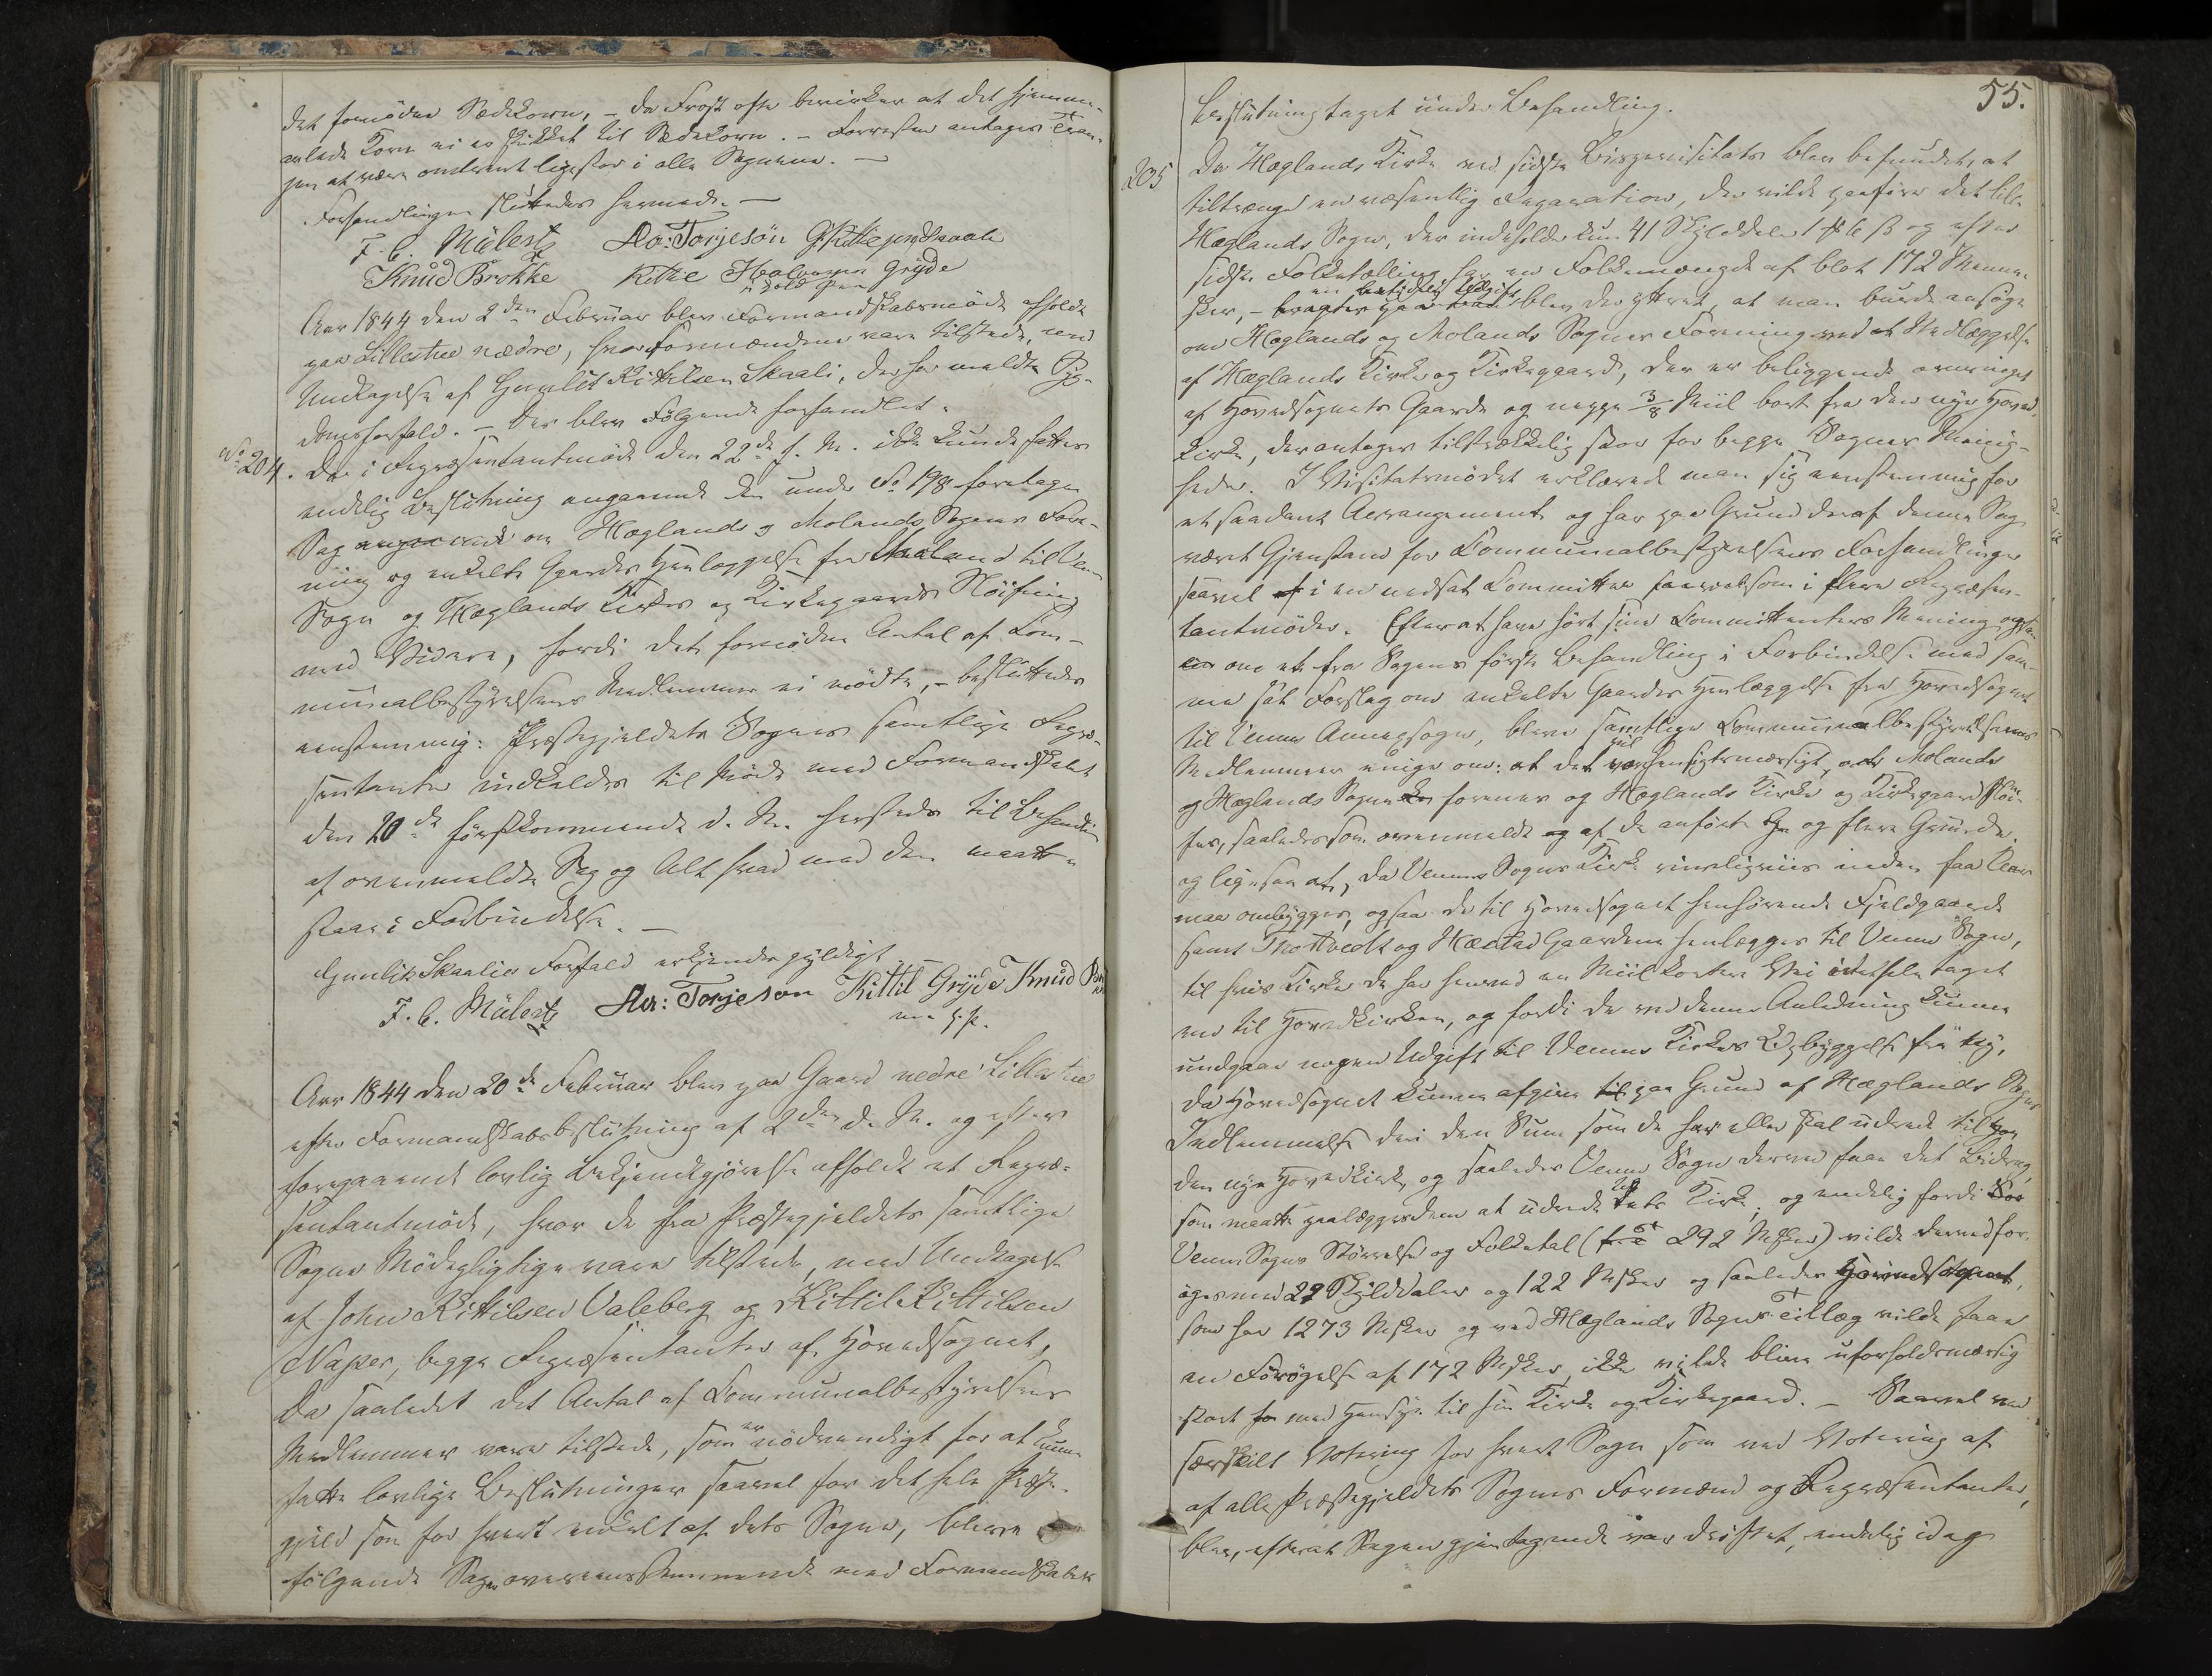 det fornødne Sædekorn, – da Frost ofte bevirker at det hjemme-
avlede Korn ei er skikket til Sædekorn. – Forresten antages Tran-
gen at være omtrent ligestor i alle Sognene. –
Forhandlingen sluttedes hermed. –
F. C. Mülertz Ao: Torjesön G. Kittilsen Skaale
Knud Brokke Kittil Halvorsen Gryde
Aar 1844 den 2den Februar blev Formandskabsmøde afholdt
paa Lillestue nædre, hvor Formændene vare tilstede, med
Undtagelse af Gunlik Kittilsen Skaali, der har meldt Syg-
domsforfald. – Der blev Følgende forhandlet:
No 204. Da i Repræsentantmøde den 22de f. M. ikke kunde fattes
endelig Beslutning angaaende den under No 198 foretagne
Sag angaaende om Hæglands og Molands Sognes Fore-
ning og enkelte Gaardes Henlæggelse fra Moland til Venn
Sogn og Hæglands Kirkes og Kirkegaards Sløifning
med Videre, fordi det fornødne Antal af Com-
munalbestyrelsens Medlemmer ei mødte, – besluttedes
eenstemmig: Præstegjeldets Sognes samtlige Repræ-
sentanter indkaldes til Møde med Formandskabet
den 20de førstkommende d. M. hersteds til Behandling
af ovenmeldte Sag og Alt hvad med den maatte
staae i Forbindelse. –
Gunlik Skaalies Forfald erkjendes gyldigt.
F. C. Mülertz Ao: Torjeson Kittil Gryde Knud
m. f. P.
Aar 1844 den 20de Februar blev paa Gaard nedre Lillestue
efter Formandskabsbeslutning af 2den d. M. og efter
foregaaende lovlig Bekjendtgjørelse afholdt et Repræ-
sentantmøde, hvor de fra Præstegjeldets samtlige
Sogne Mødepligtige vare tilstede, med Undtagelse
af John Kittilsen Valeberg og Kittil Kittilsen
Naper, begge Repræsentanter af Hovedsognet,
Da saaledes det Antal af Communalbestyrelsens
Medlemmer vare tilstede, som er nødvendigt for at kunne
fatte lovlige Beslutninger saavel for det hele Præste-
gjeld som for hvert enkelt af dets Sogne, bleve
følgende Sager overeensstemmende med Formandskabets
55.
Beslutning taget under Behandling.
205 Da Hæglands Kirke ved sidste Bispevisitats blev befundet at
tiltrænge en væsentlig Reparation, der vilde paaføre det lille
Hæglands Sogn, der indeholder kun 41 Skylddaler 1 ort 6 ß og efter
sidste Folketælling har en Folkemængde af blot 172 Menne-
sker, – en betydelig Udgift blev der yttret, at man burde ansøge
om Hæglands og Molands Sognes Forening ved at Nedlæggelse
af Hæglands Kirke og Kirkegaard, der er beliggende omringet
af Hovedsognets Gaarde og neppe 3/8 Miil bort fra den nye Hoved-
kirke, der antages tilstrækkelig stor for begge Sognes Menig-
heder. I Visitatsmødet erklærede man sig eenstemmig for
et saadant Arrangement og har paa Grund deraf denne Sag
været Gjenstand for Communalbestyrelsens Forhandlinger
saavel af i en nedsat Committee saavelsom i flere Repræsen-
tantmøder. Efter at have hørt sine Committenters Mening ogsaa
om et fra Sagens første Behandling i Forbindelse med sam-
me sat Forslag om enkelte Gaardes Henlæggelse fra Hovedsognet
til Venns Annexsogn, bleve samtlige Communalbestyrelsens
Medlemmer enige om: at det var hensigtsmæssigt, at Molands
og Hæglands Sogne forenes og Hæglands Kirke og Kirkegaard sløi-
fes, saaledes som ovenmeldt og af de anførte og flere Grunde,
og ligesaa at, da Venns Sogns Kirke rimeligviis inden faa Aar
maa ombygges, ogsaa de til Hovedsognet henhørende Fjeldgaarde
samt Thortvedt og Hæstad Gaardene henlægges til Venns Sogn,
til hvis Kirke de har henved en Miil kortere Vei idethele taget
end til Hovedkirken, og fordi de ved denne Anledning kunne
undgaae nogen Udgift til Venns Kirkes Opbyggelse,
da Hovedsognet kunne afgive til paa Grund af Hæglands Sogns
Indlemmelse deri den Sum som de har eller skal udrede til
den nye Hovedkirke, og saaledes Venns Sogn derved faae det Bidrag,
som maatte paalægges dem at udrede til dets Kirke; og endelig fordi
Venns Sogns Størrelse og Folketal ( 292 Msker) vilde derved for-
øges med 27 Skylddaler og 122 Msker og saaledes Hovedsognet,
som har 1273 Msker og ved Hæglands Sogns Tillæg vilde faae
en Forøgelse af 172 Msker, ikke vilde blive uforholdsmæssig
stort med Hensyn til sin Kirke og Kirkegaard. – Saavel ved
særskilt Votering for hvert Sogn som ved Votering af
af alle Præstegjeldets Sognes Formænd og Repræsentanter,
blev, efterat Sagen gjentagende var drøftet, endelig idag